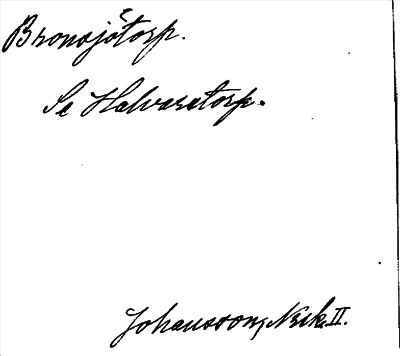 Bronsjötorp.
Se Halvarstorp.
Johansson, Nsik. II.